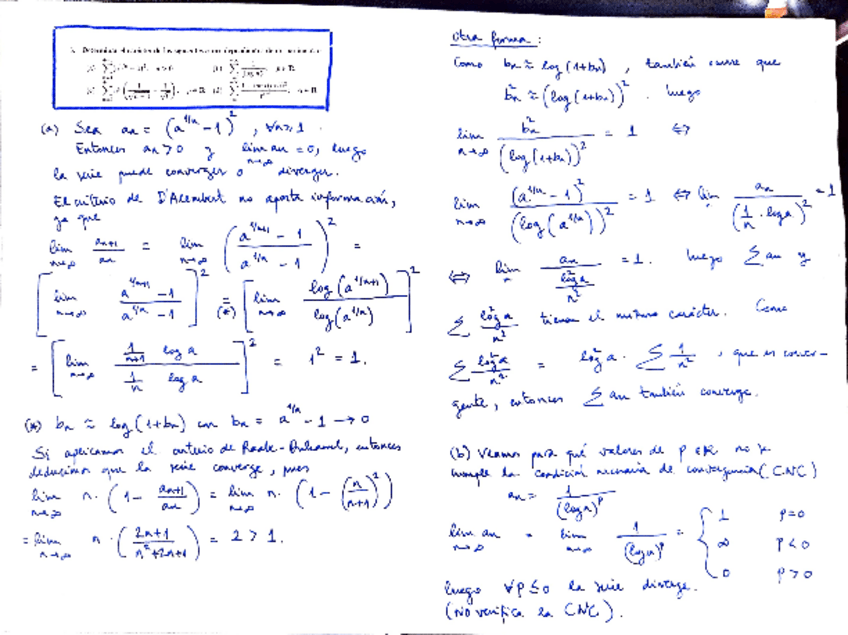 (a) Sea an = (a^{1/n} - 1)^2 , ∀n≥1.
Entonces an > 0 y lim_{n→∞} an = 0, luego
la serie puede converger o diverger.
El criterio de D'Alembert no aporta información,
ya que
lim_{n→∞} an+1/an = lim_{n→∞} ( (a^{1/n+1} - 1)/(a^{1/n} - 1) )^2 =
[ lim_{n→∞} (a^{1/n+1} - 1)/(a^{1/n} - 1) ]^2 =_{(*)} [ lim_{n→∞} log(a^{1/n+1})/log(a^{1/n}) ]^2
= [ lim_{n→∞} (1/(n+1) log a)/(1/n log a) ]^2 = 1^2 = 1.
(*) bn ≈ log(1+bn) con bn = a^{1/n} - 1 → 0
Si aplicamos el criterio de Raabe-Duhamel, entonces
deducimos que la serie converge, pues
lim_{n→∞} n · (1 - an+1/an) = lim_{n→∞} n · (1 - (n/(n+1))^2)
= lim_{n→∞} n · ( (2n+1)/(n^2+2n+1) ) = 2 > 1.
Otra forma:
Como bn ≈ log(1+bn) , también ocurre que
bn^2 ≈ (log(1+bn))^2 . luego
lim_{n→∞} bn^2/(log(1+bn))^2 = 1 ⇔
lim_{n→∞} (a^{1/n} - 1)^2/(log(a^{1/n}))^2 = 1 ⇔ lim an/(1/n · log a)^2 = 1
⇔ lim an/(log^2 a/n^2) = 1. luego Σ an y
Σ log^2 a/n^2 tienen el mismo carácter. Como
Σ log^2 a/n^2 = log^2 a · Σ 1/n^2 , que es conver-
gente, entonces Σ an también converge.
(b) Veamos para qué valores de p ∈ R no se
cumple la condición necesaria de convergencia (CNC)
an = 1/(log n)^p
lim_{n→∞} an = lim_{n→∞} 1/(log n)^p = { 1 p=0
∞ p<0
0 p>0
luego ∀p ≤ 0 la serie diverge.
(No verifica la CNC).